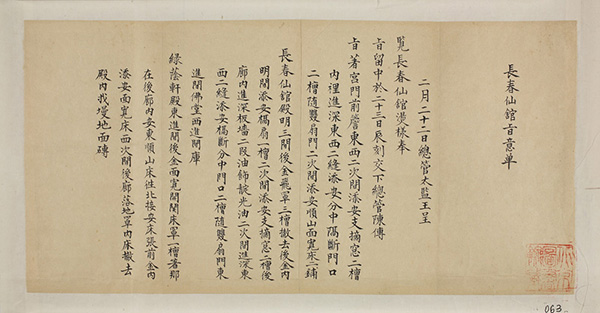 長春仙館旨意单
二月二十二日總管太監王呈
覽長春仙館燙樣奉
旨留中於二十三日辰刻交下總管陳傳
旨著宮門前簷東西二次間添安支摘窓二槽
内裡進深東西二縫添安分中隔斷門口
二槽隨雙扇門二次間添安順山面寛床二鋪
長春仙館殿明三間後金飛罩三槽撤去後金内
明間添安槅扇一槽二次間添安支摘窓二槽後
廊内進深板墻二段油飾靛光油二次間進深東
西二縫添安槅斷分中門口二槽隨雙扇門東
進間佛堂西進間庫
綠蔭軒殿東進間後金面寛開間床罩一槽著那
在後廊内安東順山床往北接安床張前金内
添安面寛床西次間後廊落地罩内床撤去
殿内找墁地面磚
063